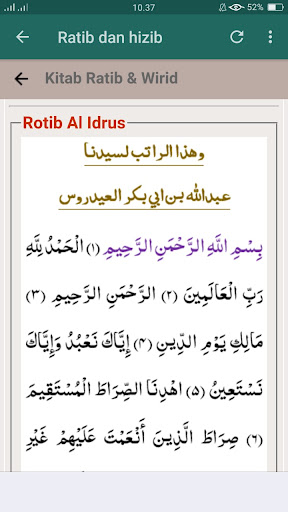 10.37
52%
Ratib dan hizib
Kitab Ratib & Wirid
Rotib Al Idrus
وهذا الراتب لسيدنا
عبدالله بن ابي بكر العيدروس
بِسْمِ اللَّهِ الرَّحْمَنِ الرَّحِيمِ (١) الْحَمْدُ لِلَّهِ
رَبِّ الْعَالَمِينَ (٢) الرَّحْمَنِ الرَّحِيمِ (٣)
مَالِكِ يَوْمِ الدِّينِ (٤) إِيَّاكَ نَعْبُدُ وَإِيَّاكَ
نَسْتَعِينُ (٥) اهْدِنَا الصِّرَاطَ الْمُسْتَقِيمَ
(٦) صِرَاطَ الَّذِينَ أَنْعَمْتَ عَلَيْهِمْ غَيْرِ